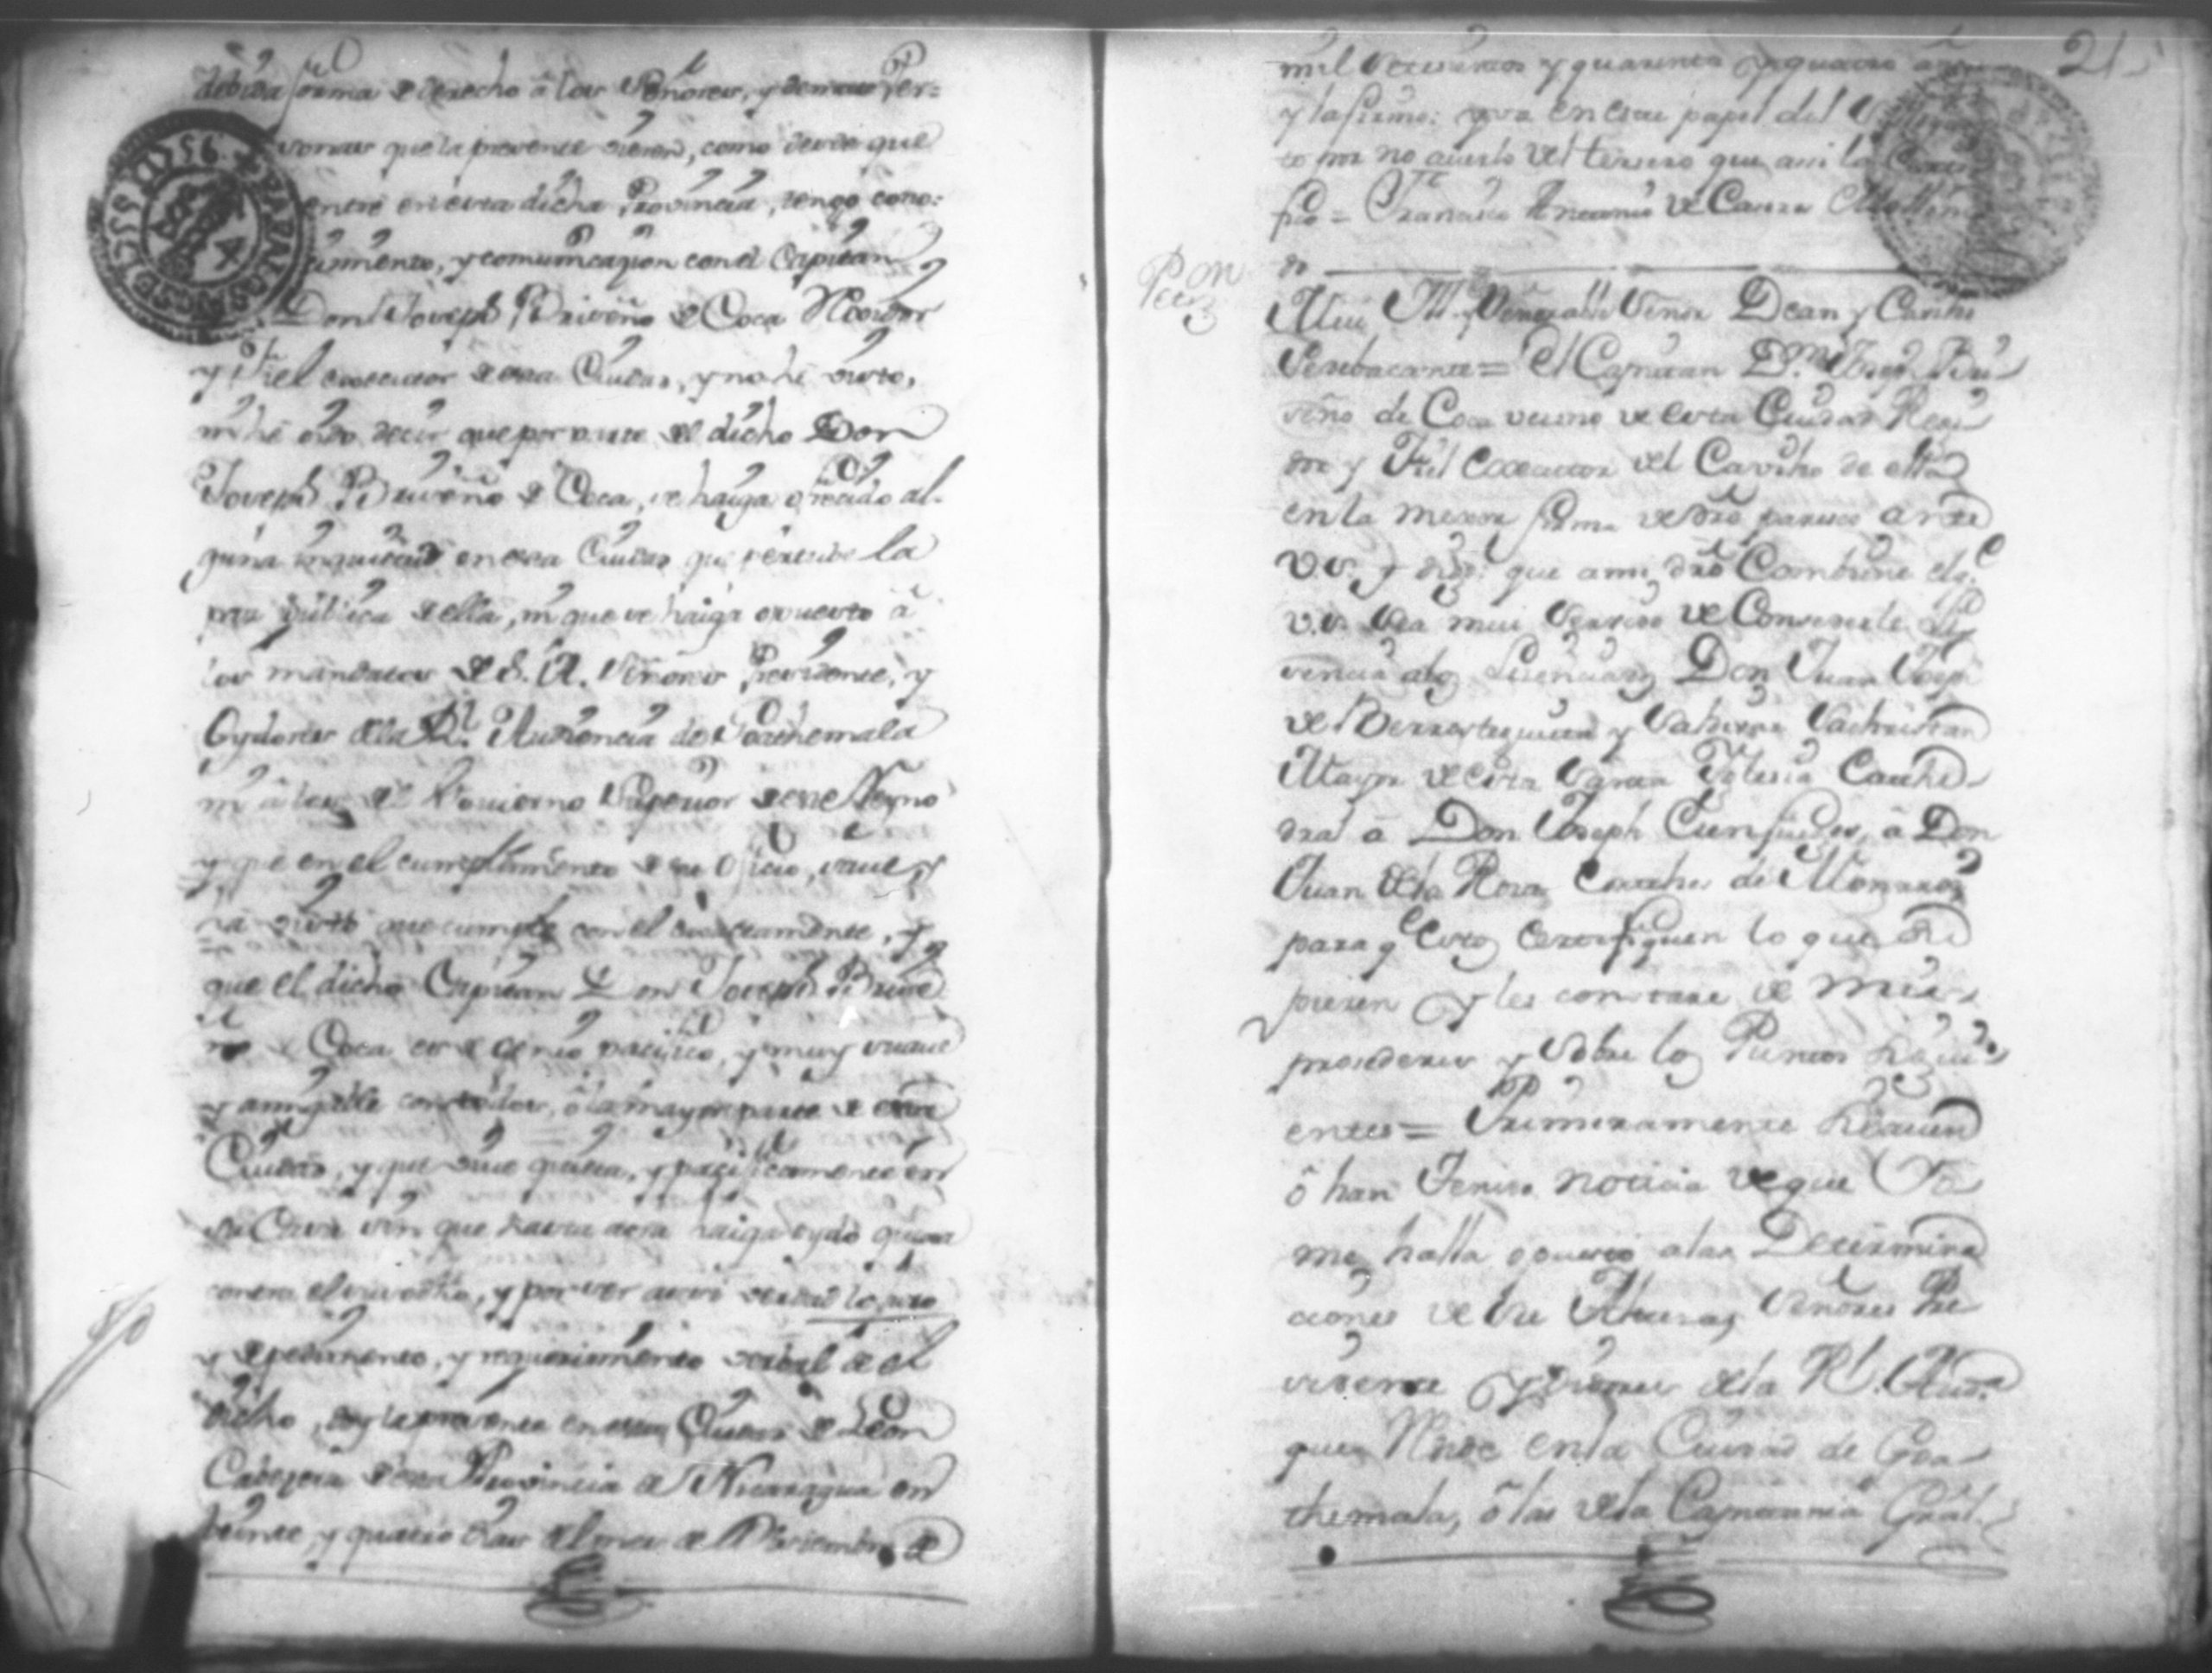 debida forma de derecho â los Señores, y demas Per=
sonas que la presente vieren, como desde que
entré en esta dicha Provincia, tengo cono:
simiento, y comunicazion con el Capitan
Don Joseph Briseño de Coca Rexidor
y Fiel executor de esta Ciudad, y no hé visto,
ni hé oido decir que por parte del dicho Don
Joseph Briseño de Coca, se haiga ofrecido al-
guna inquietud en esta Ciudad que perturbe la
paz publica de ella, ni que se haiga opuesto â
los mandatos de S. A. Señores Presidente, y
Oydores de la Rl. Audiencia de Goathemala
ni â los del Govierno Superior de este Reyno
y que en el cumplimiento de su oficio, save y
ha visto que cumple con el exactamente, y
que el dicho Capitan Don Joseph Brise
ño de Coca es de genio pacifico, y muy suave
y amigable con todos, ô la mayor parte de esta
Ciudad, y que vive quieta, y pacificamente en
su Casa sin que hasta aora haiga oydo quexa
contra el suso dho, y por ser assi verdad lo juro
y de pedimento, y requerimiento verbal de el
dicho, doy la presente en esta Ciudad de Leon
Cabezera de esta Provincia de Nicaragua en
veinte, y quatro dias del mes de Noviembre de
21
mil setecientos y quarenta y quatro años
y la firmo: y va en este papel del
to por no averlo del tersero que assi lo
fico = Francisco Antonio de Carza
do
Peon
Mui Ill. y Venerable Señor Dean y Cavildo
Sedebacante = El Capitan Dn. Joseph Bri
seño de Coca vecino de esta Ciudad Regi
dor y Fiel Executor del Cavildo de ella
en la mexor forma de dro paresco ante
V.S. y digo que a mi dro Combiene el q.e
V.S. sea mui servido de Conserderle li
sencia alos Lisenciados Don Juan Joseph
de Berrosteguieta y Cachristan
Mayor de esta Santa Yglesia Cathe-
dral â Don Joseph Cienfuegos, â Don
Juan de la Rosa
para q.e estos Certifiquen lo que su
pieren y les constare de mis
prosederes y sobre los Puntos sigui
entes = Primeramente si saven
ô han Tenido noticia de que Yo
me halla opuesto a las Determina
ciones de los Señores Pre
sidente y Oidores de la Rl. Aud.a
que Reside en la Ciudad de Goa-
themala, ô las de la Capitania Gral.